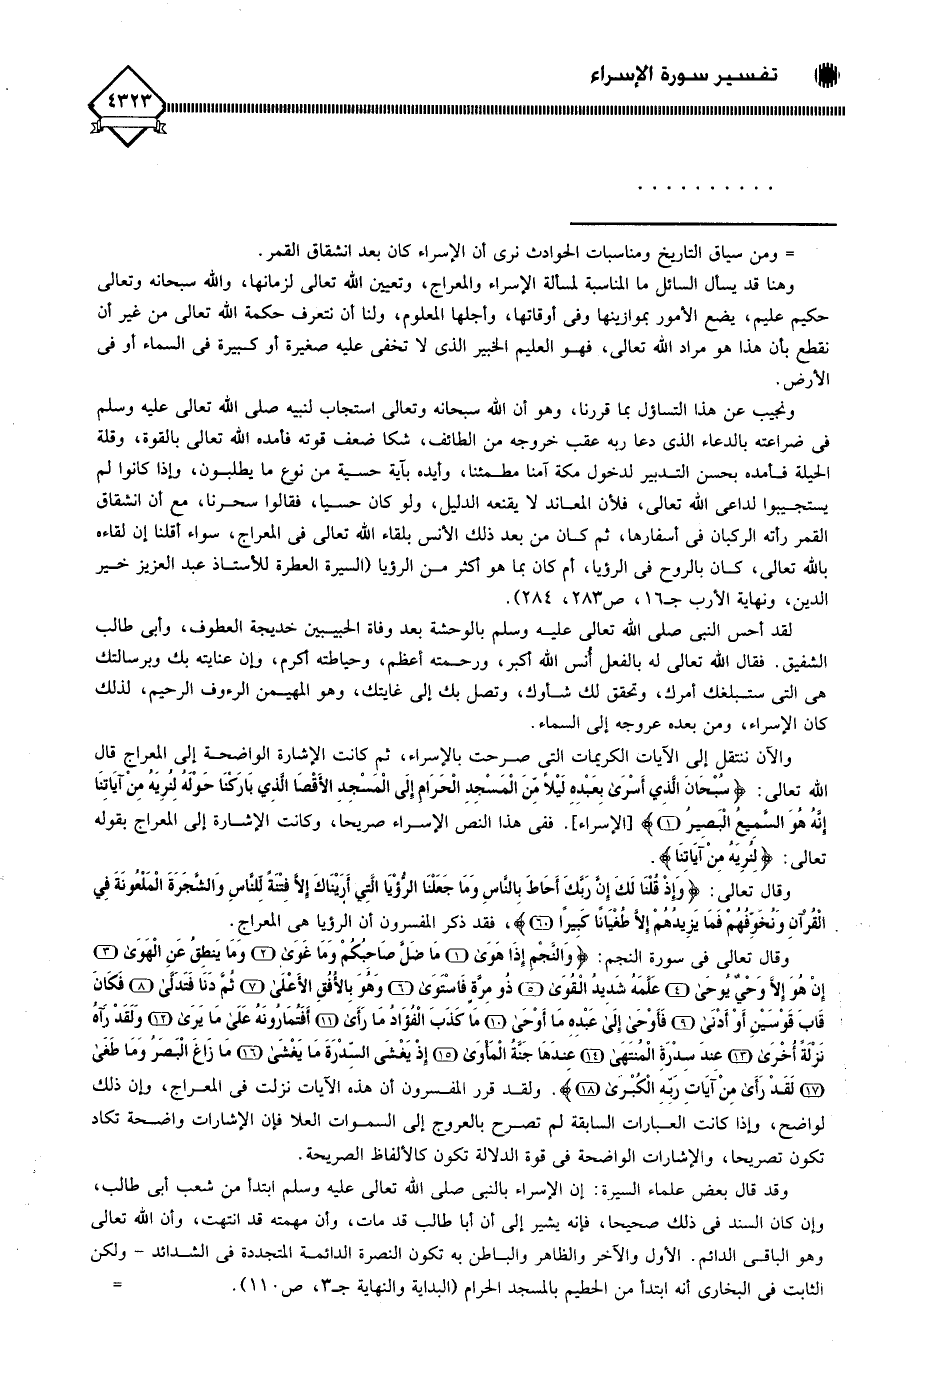 تفسير سورة الإسراء
٤٣٢٣
. . . . . . . . . .
= ومن سياق التاريخ ومناسبات الحوادث نرى أن الإسراء كان بعد انشقاق القمر.
وهنا قد يسأل السائل ما المناسبة لمسألة الإسراء والمعراج، وتعيين الله تعالى لزمانها، والله سبحانه وتعالى
حكيم عليم، يضع الأمور بموازينها وفى أوقاتها، وأجلها المعلوم، ولنا أن نتعرف حكمة الله تعالى من غير أن
نقطع بأن هذا هو مراد الله تعالى، فهو العليم الخبير الذى لا تخفى عليه صغيرة أو كبيرة فى السماء أو فى
الأرض.
ونجيب عن هذا التساؤل بما قررنا، وهو أن الله سبحانه وتعالى استجاب لنبيه صلى الله تعالى عليه وسلم
فى ضراعته بالدعاء الذى دعا ربه عقب خروجه من الطائف، شكا ضعف قوته فأمده الله تعالى بالقوة، وقلة
الحيلة فأمده بحسن التدبير لدخول مكة آمنا مطمئنا، وأيده بآية حسية من نوع ما يطلبون، وإذا كانوا لم
يستجيبوا لداعى الله تعالى، فلأن المعاند لا يقنعه الدليل، ولو كان حسيا، فقالوا سحرنا، مع أن انشقاق
القمر رأته الركبان فى أسفارها، ثم كان من بعد ذلك الأنس بلقاء الله تعالى فى المعراج، سواء أقلنا إن لقاءه
بالله تعالى، كان بالروح فى الرؤيا، أم كان بما هو أكثر من الرؤيا (السيرة العطرة للأستاذ عبد العزيز خير
الدين، ونهاية الأرب جـ١٦، ص٢٨٣، ٢٨٤).
لقد أحس النبى صلى الله تعالى عليه وسلم بالوحشة بعد وفاة الحبيبين خديجة العطوف، وأبى طالب
الشفيق. فقال الله تعالى له بالفعل أُنس الله أكبر، ورحمته أعظم، وحياطته أكرم، وإن عنايته بك وبرسالتك
هى التى ستبلغك أمرك، وتحقق لك شأوك، وتصل بك إلى غايتك، وهو المهيمن الرءوف الرحيم، لذلك
كان الإسراء، ومن بعده عروجه إلى السماء.
والآن ننتقل إلى الآيات الكريمات التى صرحت بالإسراء، ثم كانت الإشارة الواضحة إلى المعراج قال
الله تعالى: ﴿سُبْحَانَ الَّذِي أَسْرَىٰ بِعَبْدِهِ لَيْلاً مِّنَ الْمَسْجِدِ الْحَرَامِ إِلَى الْمَسْجِدِ الأَقْصَا الَّذِي بَارَكْنَا حَوْلَهُ لِنُرِيَهُ مِنْ آيَاتِنَا
إِنَّهُ هُوَ السَّمِيعُ الْبَصِيرُ (١)﴾ [الإسراء]. ففى هذا النص الإسراء صريحا، وكانت الإشارة إلى المعراج بقوله
تعالى: ﴿لِنُرِيَهُ مِنْ آيَاتِنَا﴾.
وقال تعالى: ﴿وَإِذْ قُلْنَا لَكَ إِنَّ رَبَّكَ أَحَاطَ بِالنَّاسِ وَمَا جَعَلْنَا الرُّؤْيَا الَّتِي أَرَيْنَاكَ إِلاَّ فِتْنَةً لِّلنَّاسِ وَالشَّجَرَةَ الْمَلْعُونَةَ فِي
الْقُرْآنِ وَنُخَوِّفُهُمْ فَمَا يَزِيدُهُمْ إِلاَّ طُغْيَانًا كَبِيرًا (٦٠)﴾، فقد ذكر المفسرون أن الرؤيا هى المعراج.
وقال تعالى فى سورة النجم: ﴿وَالنَّجْمِ إِذَا هَوَىٰ (١) مَا ضَلَّ صَاحِبُكُمْ وَمَا غَوَىٰ (٢) وَمَا يَنطِقُ عَنِ الْهَوَىٰ (٣)
إِنْ هُوَ إِلاَّ وَحْيٌ يُوحَىٰ (٤) عَلَّمَهُ شَدِيدُ الْقُوَىٰ (٥) ذُو مِرَّةٍ فَاسْتَوَىٰ (٦) وَهُوَ بِالأُفُقِ الأَعْلَىٰ (٧) ثُمَّ دَنَا فَتَدَلَّىٰ (٨) فَكَانَ
قَابَ قَوْسَيْنِ أَوْ أَدْنَىٰ (٩) فَأَوْحَىٰ إِلَىٰ عَبْدِهِ مَا أَوْحَىٰ (١٠) مَا كَذَبَ الْفُؤَادُ مَا رَأَىٰ (١١) أَفَتُمَارُونَهُ عَلَىٰ مَا يَرَىٰ (١٢) وَلَقَدْ رَآهُ
نَزْلَةً أُخْرَىٰ (١٣) عِندَ سِدْرَةِ الْمُنتَهَىٰ (١٤) عِندَهَا جَنَّةُ الْمَأْوَىٰ (١٥) إِذْ يَغْشَى السِّدْرَةَ مَا يَغْشَىٰ (١٦) مَا زَاغَ الْبَصَرُ وَمَا طَغَىٰ
(١٧) لَقَدْ رَأَىٰ مِنْ آيَاتِ رَبِّهِ الْكُبْرَىٰ (١٨)﴾. ولقد قرر المفسرون أن هذه الآيات نزلت فى المعراج، وإن ذلك
لواضح، وإذا كانت العبارات السابقة لم تصرح بالعروج إلى السموات العلا فإن الإشارات واضحة تكاد
تكون تصريحا، والإشارات الواضحة فى قوة الدلالة تكون كالألفاظ الصريحة.
وقد قال بعض علماء السيرة: إن الإسراء بالنبى صلى الله تعالى عليه وسلم ابتدأ من شعب أبى طالب،
وإن كان السند فى ذلك صحيحا، فإنه يشير إلى أن أبا طالب قد مات، وأن مهمته قد انتهت، وأن الله تعالى
وهو الباقى الدائم. الأول والآخر والظاهر والباطن به تكون النصرة الدائمة المتجددة فى الشدائد - ولكن
الثابت فى البخارى أنه ابتدأ من الحطيم بالمسجد الحرام (البداية والنهاية جـ٣، ص١١٠). =